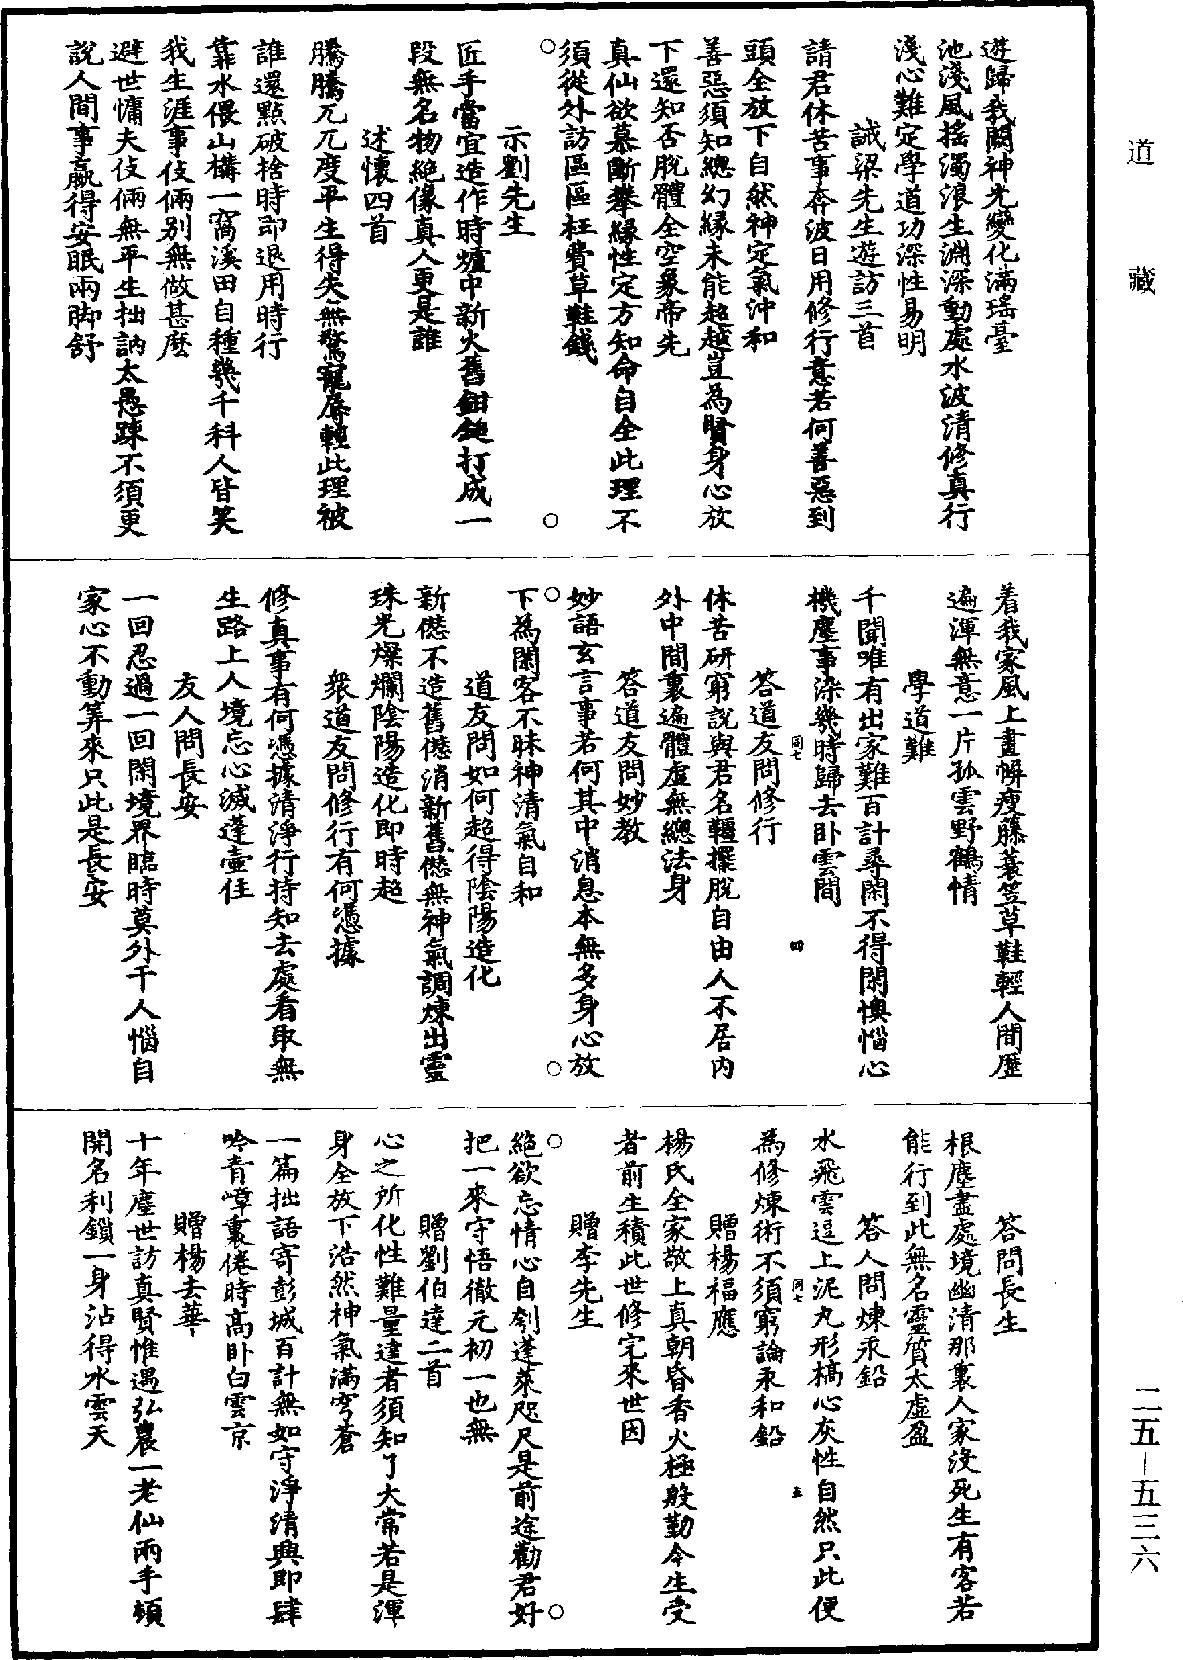 道藏
遊歸我闕神光變化滿瑤臺
池淺風搖濁浪生淵深動處水波清修真行
淺心難定學道功深性易明
誡梁先生遊訪三首
請君休苦事奔波日用修行意若何善惡到
頭全放下自然神定氣沖和
善惡須知總幻緣未能超越豈為賢身心放
下還知否脫體全空象帝先
真仙欲慕斷攀緣性定方知命自全此理不
須從外訪區區枉費草鞋錢
示劉先生
匠手當宜造作時爐中新火舊鉗鎚打成一
段無名物絕像真人更是誰
述懷四首
騰騰兀兀度平生得失無驚寵辱輕此理被
誰還點破捨時即退用時行
靠水偎山構一窩溪田自種幾千科人皆笑
我生涯事伎倆別無做甚麼
避世慵夫伎倆無平生拙訥太愚踈不須更
說人間事贏得安眠兩脚舒
着我家風上畫幈瘦藤蓑笠草鞋輕人間歷
遍渾無意一片孤雲野鶴情
學道難
千聞唯有出家難百計尋閑不得閑懊惱心
機塵事染幾時歸去卧雲間
同七
四
答道友問修行
休苦研窮說與君名韁擺脫自由人不居內
外中間裏遍體虛無總法身
答道友問妙教
妙語玄言事若何其中消息本無多身心放
下為閑客不昧神清氣自和
道友問如何超得陰陽造化
新愆不造舊愆消新舊愆無神氣調煉出靈
珠光燦爛陰陽造化即時超
衆道友問修行有何憑據
修真事有何憑據清淨行持知去處看取無
生路上人境忘心滅蓬壺住
友人問長安
一回忍過一回閑境界臨時莫外干人惱自
家心不動筭來只此是長安
答問長生
根塵盡處境幽清那裏人家沒死生有客若
能行到此無名靈質太虛盈
答人問煉汞鉛
水飛雲逗上泥丸形槁心灰性自然只此便
為修煉術不須窮論汞和鉛
同七
五
贈楊福應
楊氏全家敬上真朝昏香火極殷勤今生受
者前生積此世修完來世因
贈李先生
絕欲忘情心自刳蓬萊咫尺是前途勸君好
把一來守悟徹元初一也無
贈劉伯達二首
心之所化性難量達者須知了大常若是渾
身全放下浩然神氣滿穹蒼
一篇拙語寄彭城百計無如守淨清興即肆
吟青嶂裏倦時高卧白雲京
贈楊去華
十年塵世訪真賢惟遇弘農一老仙兩手頓
開名利鎖一身沾得水雲天
二五—五三六